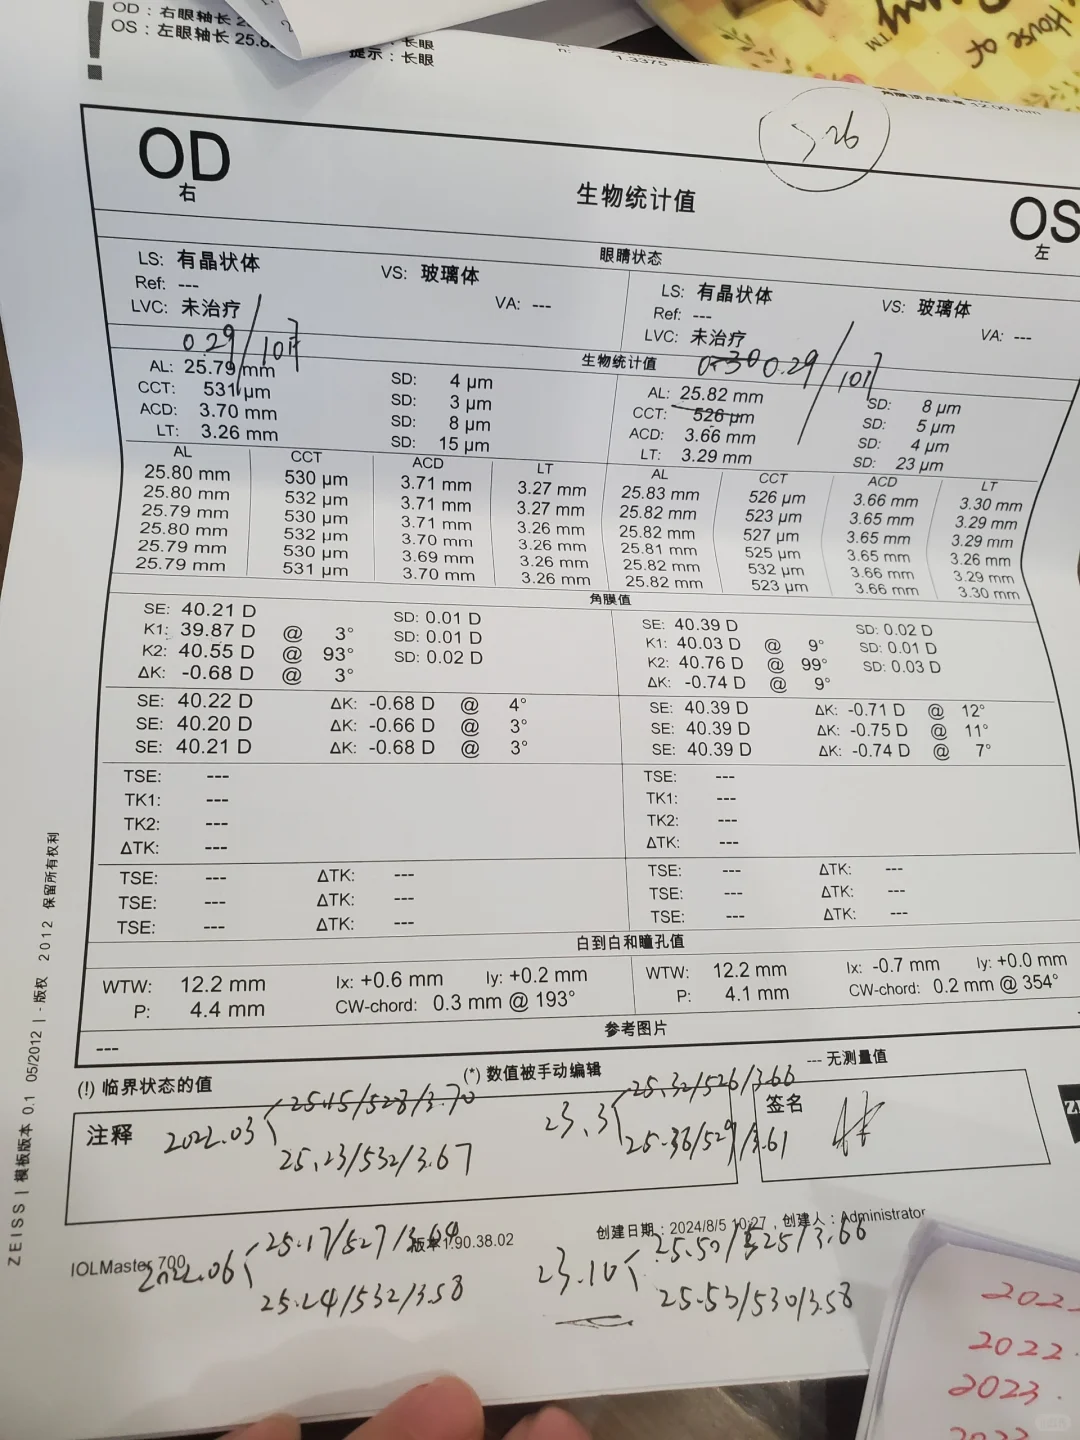 OD : 右眼轴长 2
OS : 左眼轴长 25.8
: 长眼
提示 : 长眼
1.3375
12.00 mm
House of
526
OD
右
生物统计值
OS
左
眼睛状态
LS: 有晶状体 VS: 玻璃体
Ref: --- VA: ---
LVC: 未治疗
LS: 有晶状体 VS: 玻璃体
Ref: --- VA: ---
LVC: 未治疗
0.29/10月
生物统计值
0.30 0.29/10月
AL: 25.79 mm SD: 4 μm
CCT: 531 μm SD: 3 μm
ACD: 3.70 mm SD: 8 μm
LT: 3.26 mm SD: 15 μm
AL: 25.82 mm SD: 8 μm
CCT: 526 μm SD: 5 μm
ACD: 3.66 mm SD: 4 μm
LT: 3.29 mm SD: 23 μm
AL CCT ACD LT
25.80 mm 530 μm 3.71 mm 3.27 mm
25.80 mm 532 μm 3.71 mm 3.27 mm
25.79 mm 530 μm 3.71 mm 3.26 mm
25.80 mm 532 μm 3.70 mm 3.26 mm
25.79 mm 530 μm 3.69 mm 3.26 mm
25.79 mm 531 μm 3.70 mm 3.26 mm
AL CCT ACD LT
25.83 mm 526 μm 3.66 mm 3.30 mm
25.82 mm 523 μm 3.65 mm 3.29 mm
25.82 mm 527 μm 3.65 mm 3.29 mm
25.81 mm 525 μm 3.65 mm 3.26 mm
25.82 mm 532 μm 3.66 mm 3.29 mm
25.82 mm 523 μm 3.66 mm 3.30 mm
角膜值
SE: 40.21 D SD: 0.01 D
K1: 39.87 D @ 3° SD: 0.01 D
K2: 40.55 D @ 93° SD: 0.02 D
ΔK: -0.68 D @ 3°
SE: 40.39 D SD: 0.02 D
K1: 40.03 D @ 9° SD: 0.01 D
K2: 40.76 D @ 99° SD: 0.03 D
ΔK: -0.74 D @ 9°
SE: 40.22 D ΔK: -0.68 D @ 4°
SE: 40.20 D ΔK: -0.66 D @ 3°
SE: 40.21 D ΔK: -0.68 D @ 3°
SE: 40.39 D ΔK: -0.71 D @ 12°
SE: 40.39 D ΔK: -0.75 D @ 11°
SE: 40.39 D ΔK: -0.74 D @ 7°
TSE: ---
TK1: ---
TK2: ---
ΔTK: ---
TSE: ---
TK1: ---
TK2: ---
ΔTK: ---
TSE: --- ΔTK: ---
TSE: --- ΔTK: ---
TSE: --- ΔTK: ---
TSE: --- ΔTK: ---
TSE: --- ΔTK: ---
TSE: --- ΔTK: ---
白到白和瞳孔值
WTW: 12.2 mm Ix: +0.6 mm Iy: +0.2 mm
P: 4.4 mm CW-chord: 0.3 mm @ 193°
WTW: 12.2 mm Ix: -0.7 mm Iy: +0.0 mm
P: 4.1 mm CW-chord: 0.2 mm @ 354°
参考图片
---
(!) 临界状态的值 (*) 数值被手动编辑 --- 无测量值
注释
2022.03
25.15/528/3.70
25.23/532/3.67
23.3
25.32/526/3.66
25.36/529/3.61
签名
IOLMaster 700
版本 1.90.38.02
创建日期 : 2024/8/5 10:27 , 创建人 : Administrator
2022.06
25.17/527/3.64
25.24/532/3.58
23.10
25.50/525/3.66
25.53/530/3.58
ZEISS | 模板版本 0.1 05/2012 | - 版权 2012 保留所有权利
2022.
2023.